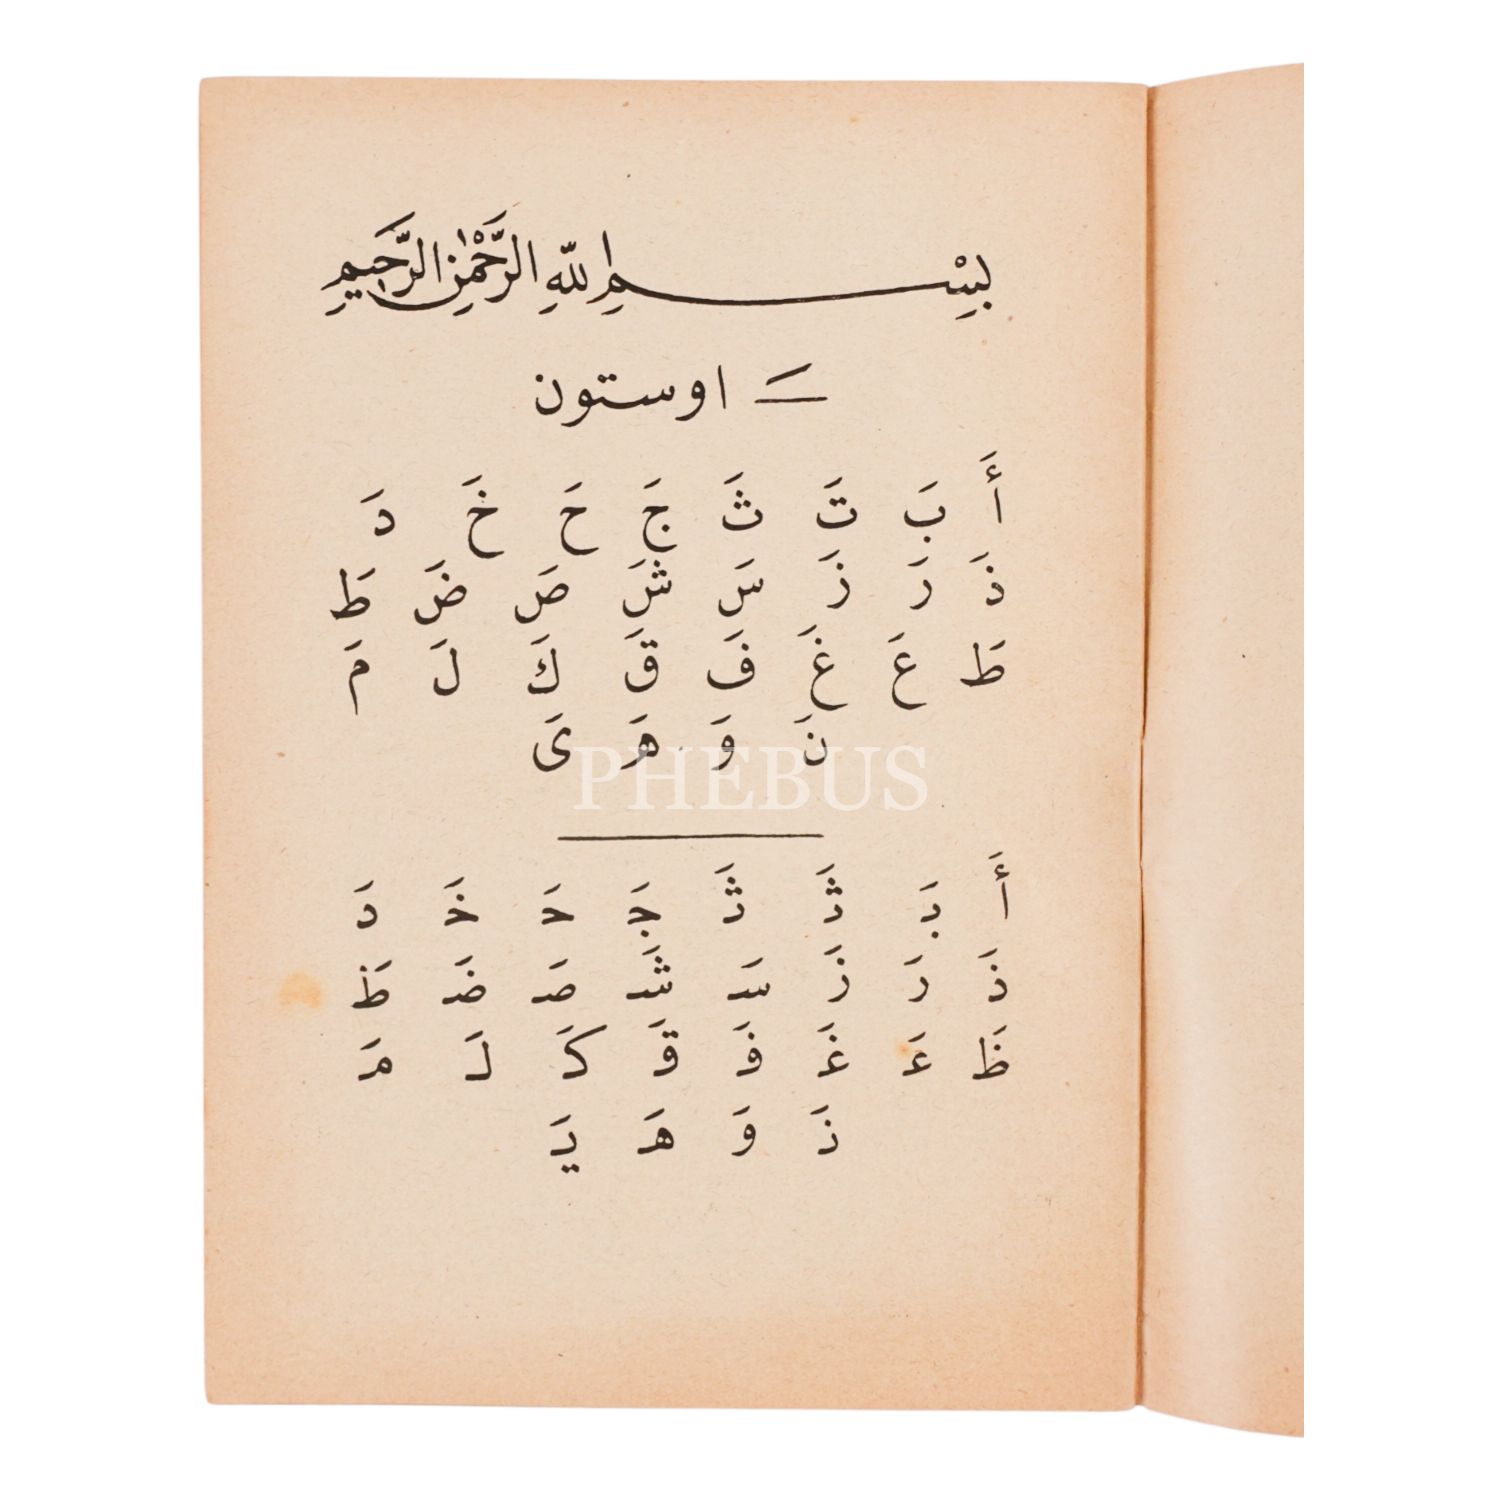 بِسْمِ اللّٰهِ الرَّحْمٰنِ الرَّحِيمِ
ـَ اوستون
أَ بَ تَ ثَ جَ حَ خَ دَ
ذَ رَ زَ سَ شَ صَ ضَ طَ
طَ عَ غَ فَ قَ كَ لَ مَ
نَ وَ هَ ىَ
PHEBUS
أَ بَـ تَـ ثَـ جَـ حَـ خَـ دَ
ذَ رَ زَ سَـ شَـ صَـ ضَـ ظَ
ظَ عَـ غَـ فَـ قَـ كَـ لَـ مَـ
نَـ وَ هَـ يَـ